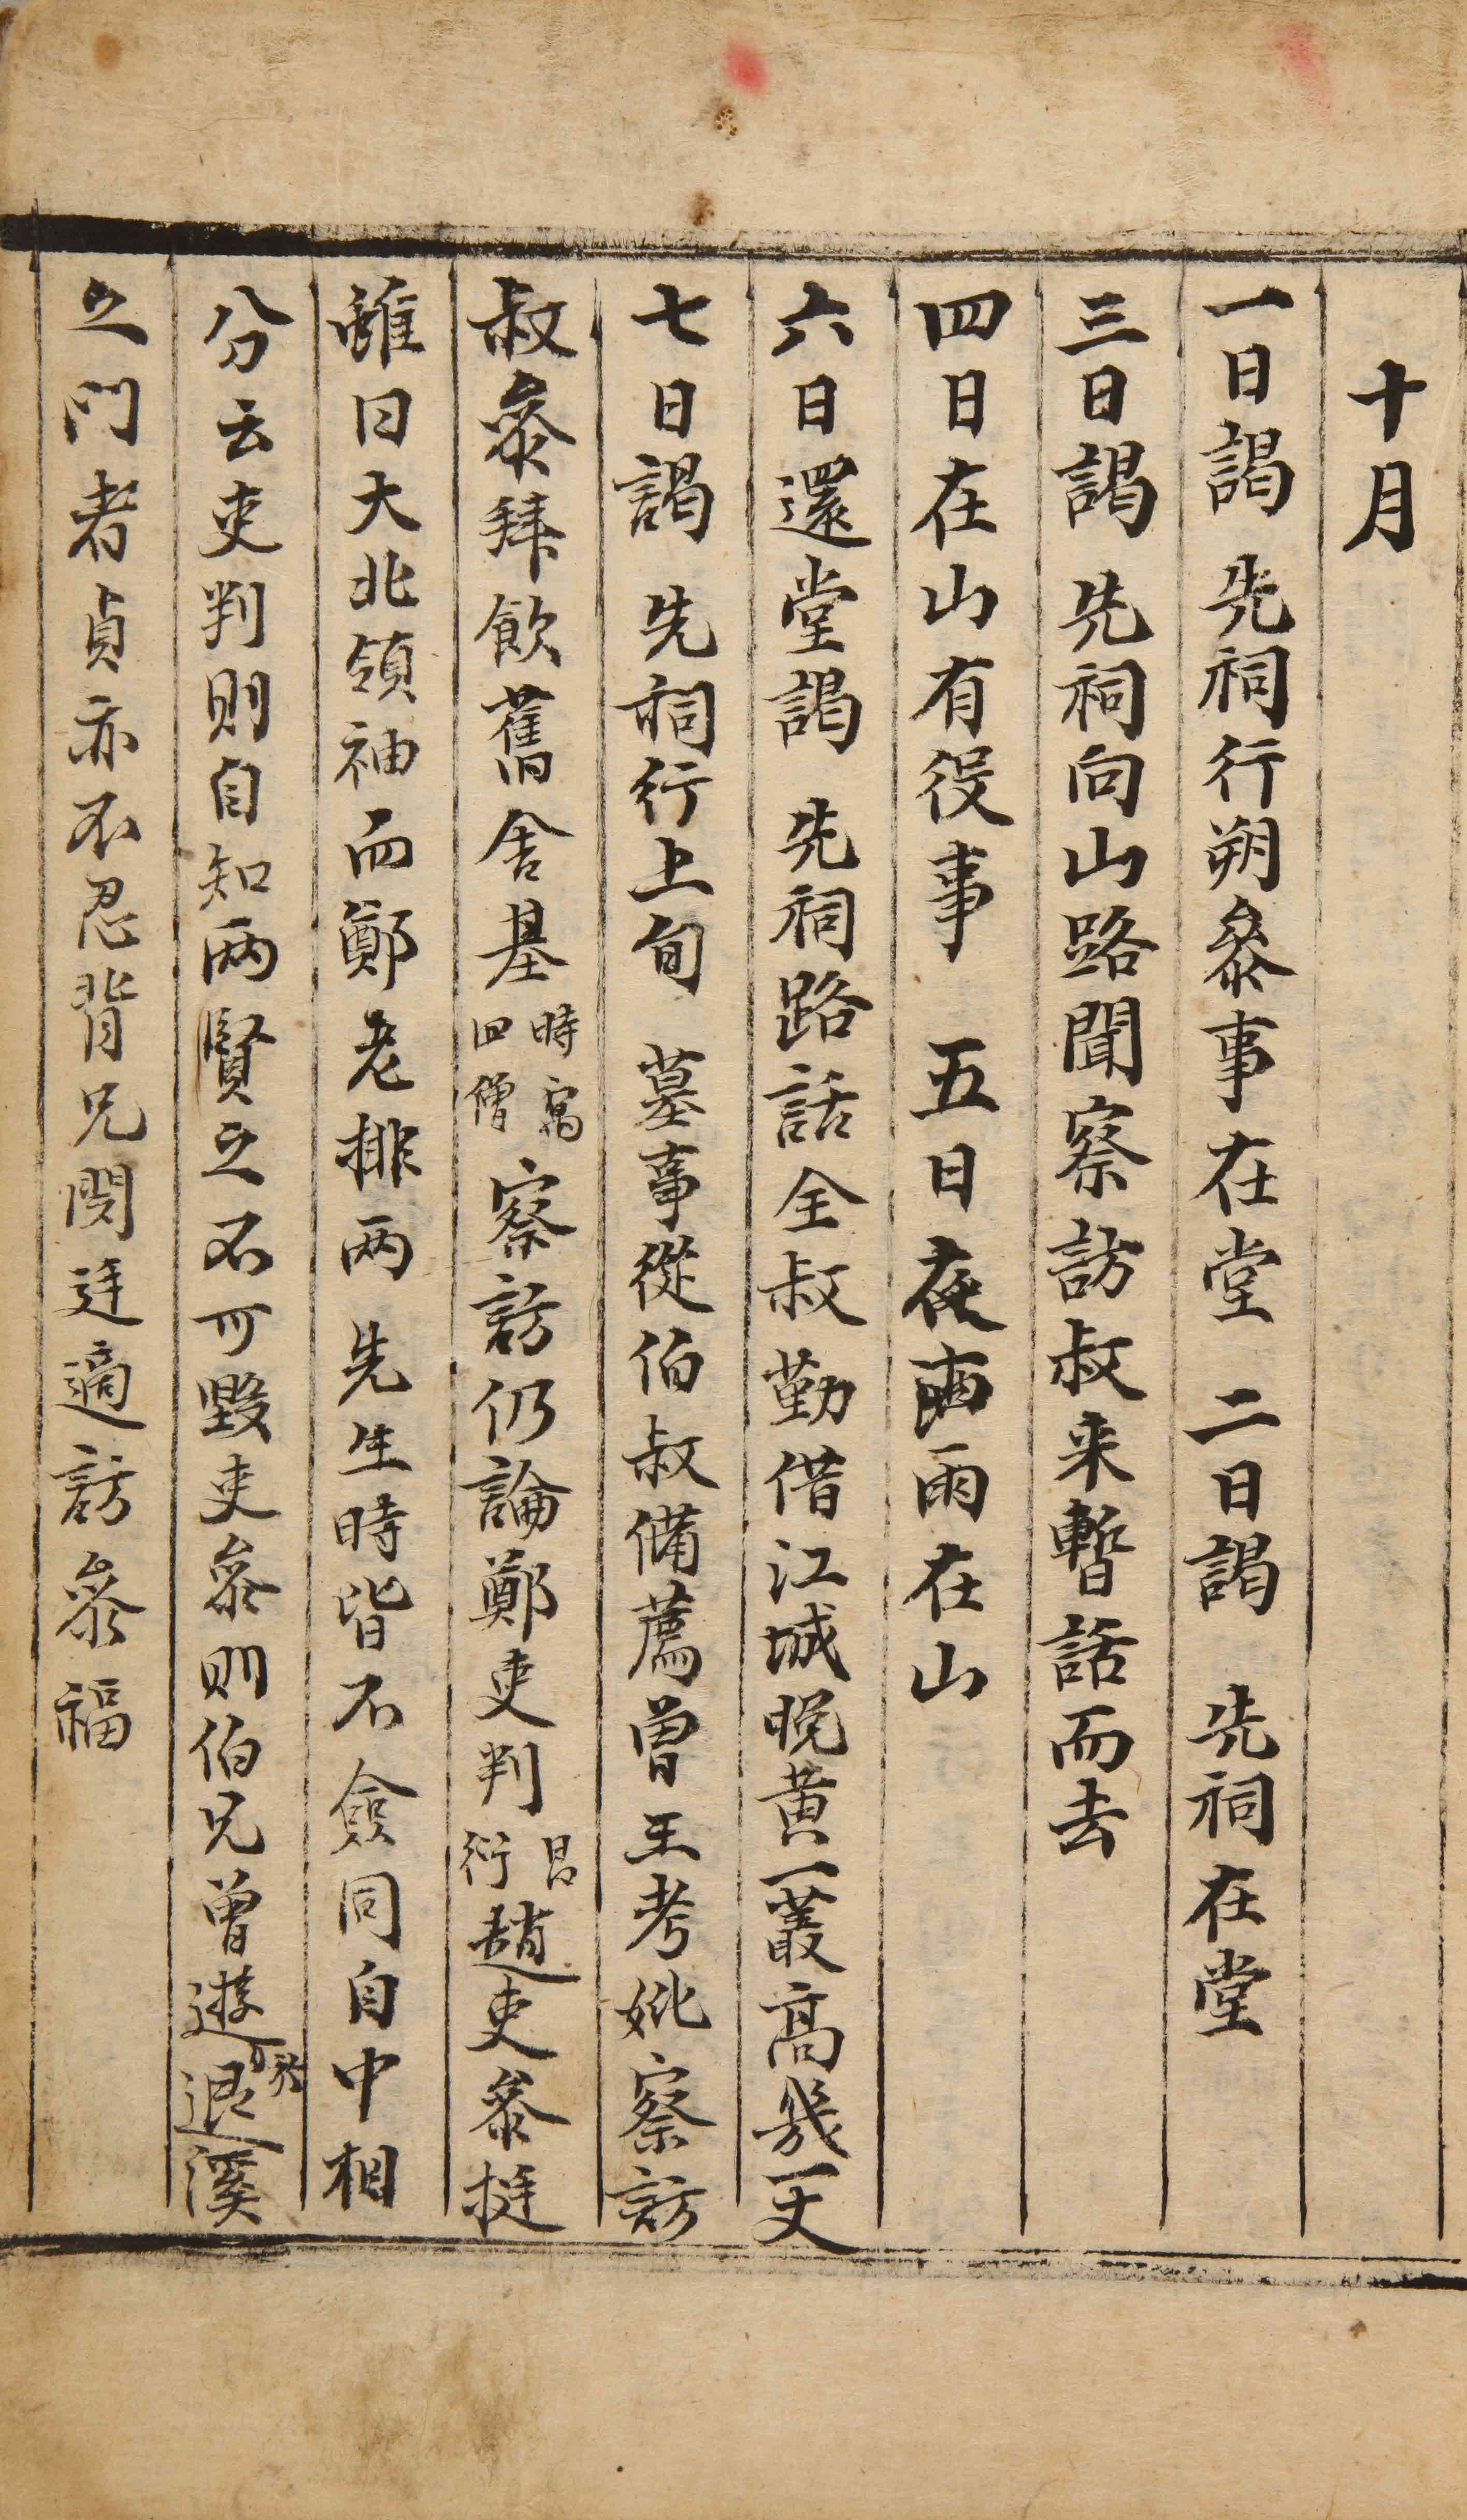 十月
一日謁 先祠行朔參事在堂 二日謁 先祠在堂
三日謁 先祠向山路聞察訪叔来暫話而去
四日在山有役事 五日夜雨在山
六日還堂謁 先祠路話全叔勤借江城晩黄一叢高幾一丈
七日謁 先祠行上旬 墓事從伯叔備薦曾王考妣察訪
叔參拜飲舊舍基時寓四僧察訪仍論鄭吏判昌衍趙吏參挺
雖曰大北領袖而鄭老排兩 先生時皆不僉同自中相
分云吏判則自知兩賢之不可毀吏參則伯兄曾遊退溪
之門者貞亦不忍背兄閔廷適訪參福